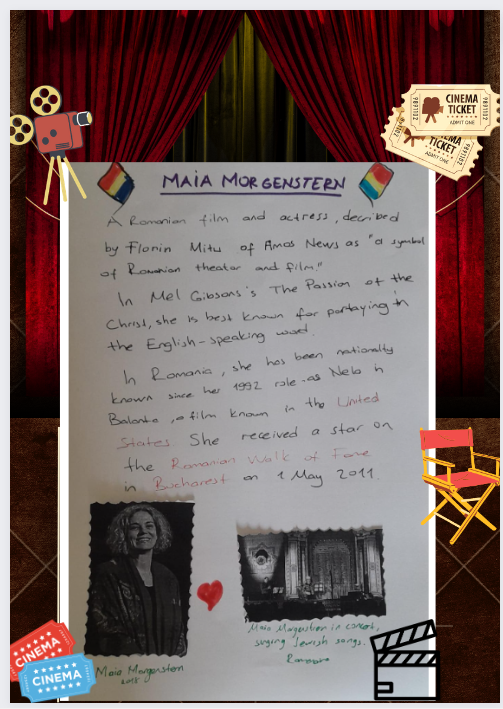 CINEMA
TICKET
ADMIT ONE
9891102
9891102
TICKET
ADMIT ONE
MAIA MORGENSTERN
A Romanian film and actress, decribed
by Florin Mitu of Amos News as "a symbol
of Romanian theater and film."
In Mel Gibsons's The Passion of the
Christ, she is best known for portaying in
the English-speaking
In Romania, she has been nationally
known since her 1992 role as Nela in
Balanta, a film known in the United
States She received a star on
the Romanian Walk of Fame
in Bucharest on 1 May 2011.
Maia Morgenstern
Maia Morgenstern in concert,
singing Jewish songs.
CINEMA
CINEMA